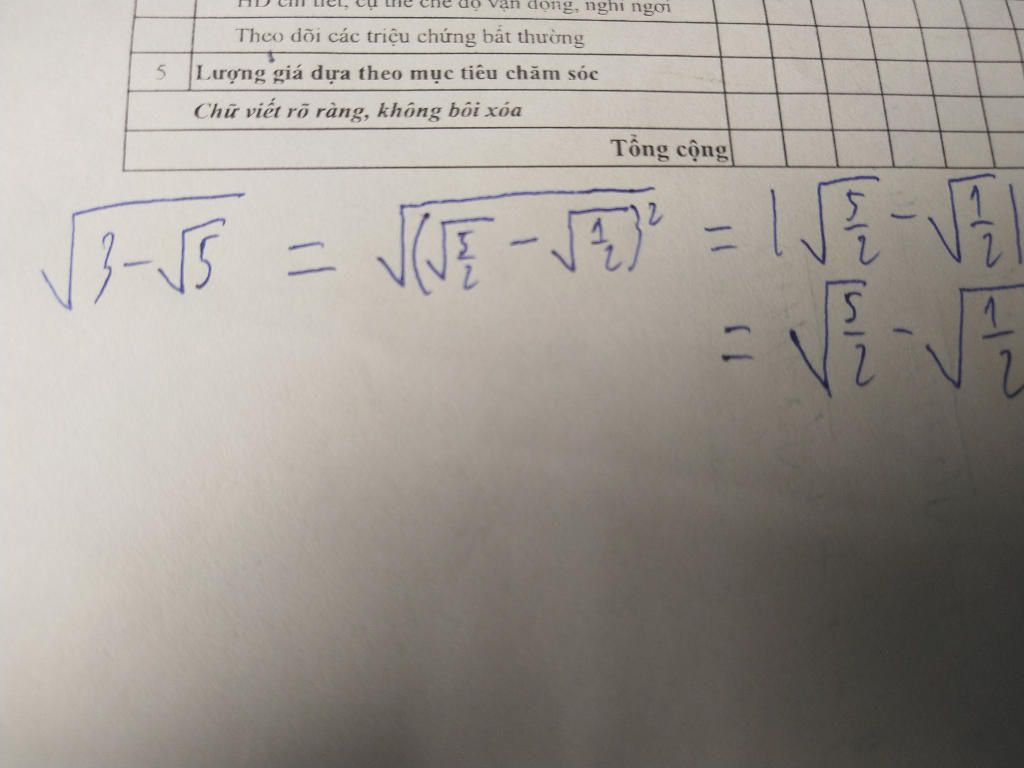 HD chi tiết, cụ thể chế độ vận động, nghỉ ngơi
Theo dõi các triệu chứng bất thường
5 Lượng giá dựa theo mục tiêu chăm sóc
Chữ viết rõ ràng, không bôi xóa
Tổng cộng
√(3-√5) = √((√(5/2) - √(1/2))²) = |√(5/2) - √(1/2)|
= √(5/2) - √(1/2)